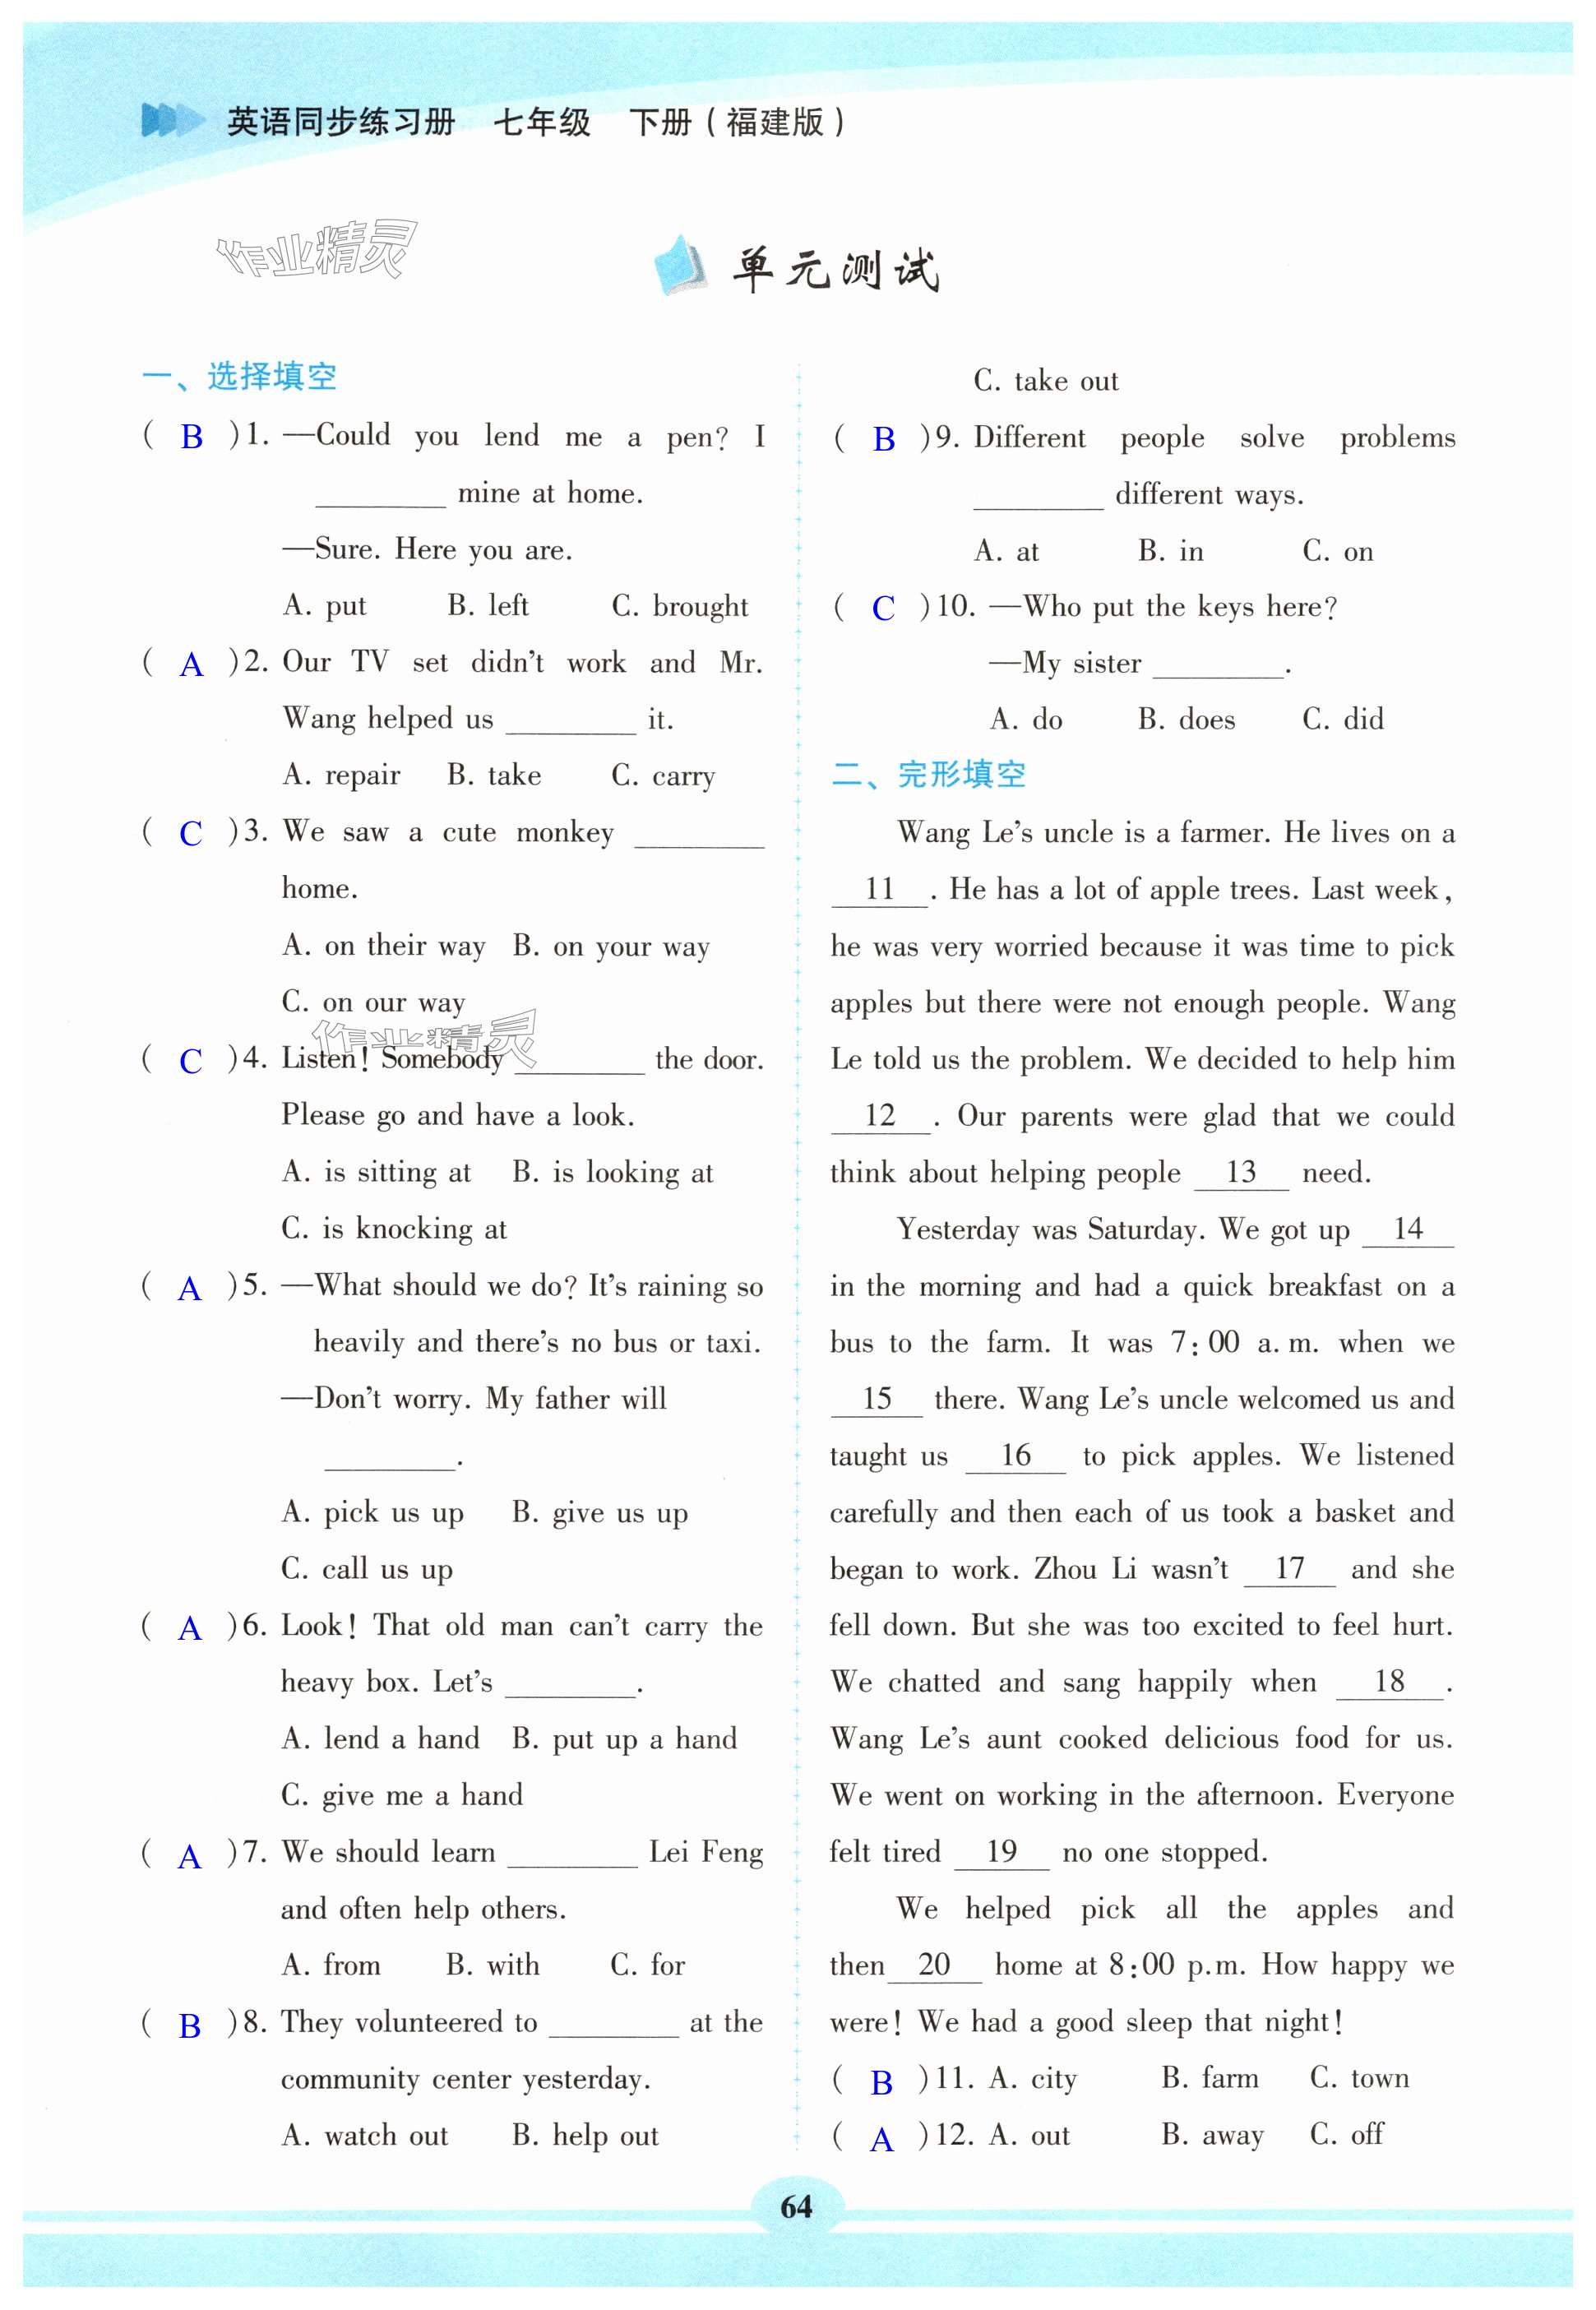 英语同步练习册 七年级 下册（福建版）
作业精灵
单元测试
一、选择填空
( B )1. —Could you lend me a pen? I
________ mine at home.
—Sure. Here you are.
A. put B. left C. brought
( A )2. Our TV set didn't work and Mr.
Wang helped us ________ it.
A. repair B. take C. carry
( C )3. We saw a cute monkey ________
home.
A. on their way B. on your way
C. on our way
作业精灵
( C )4. Listen! Somebody ________ the door.
Please go and have a look.
A. is sitting at B. is looking at
C. is knocking at
( A )5. —What should we do? It's raining so
heavily and there's no bus or taxi.
—Don't worry. My father will
________.
A. pick us up B. give us up
C. call us up
( A )6. Look! That old man can't carry the
heavy box. Let's ________.
A. lend a hand B. put up a hand
C. give me a hand
( A )7. We should learn ________ Lei Feng
and often help others.
A. from B. with C. for
( B )8. They volunteered to ________ at the
community center yesterday.
A. watch out B. help out
C. take out
( B )9. Different people solve problems
________ different ways.
A. at B. in C. on
( C )10. —Who put the keys here?
—My sister ________.
A. do B. does C. did
二、完形填空
Wang Le's uncle is a farmer. He lives on a
11 . He has a lot of apple trees. Last week,
he was very worried because it was time to pick
apples but there were not enough people. Wang
Le told us the problem. We decided to help him
12 . Our parents were glad that we could
think about helping people 13 need.
Yesterday was Saturday. We got up 14
in the morning and had a quick breakfast on a
bus to the farm. It was 7:00 a.m. when we
15 there. Wang Le's uncle welcomed us and
taught us 16 to pick apples. We listened
carefully and then each of us took a basket and
began to work. Zhou Li wasn't 17 and she
fell down. But she was too excited to feel hurt.
We chatted and sang happily when 18 .
Wang Le's aunt cooked delicious food for us.
We went on working in the afternoon. Everyone
felt tired 19 no one stopped.
We helped pick all the apples and
then 20 home at 8:00 p.m. How happy we
were! We had a good sleep that night!
( B )11. A. city B. farm C. town
( A )12. A. out B. away C. off
64